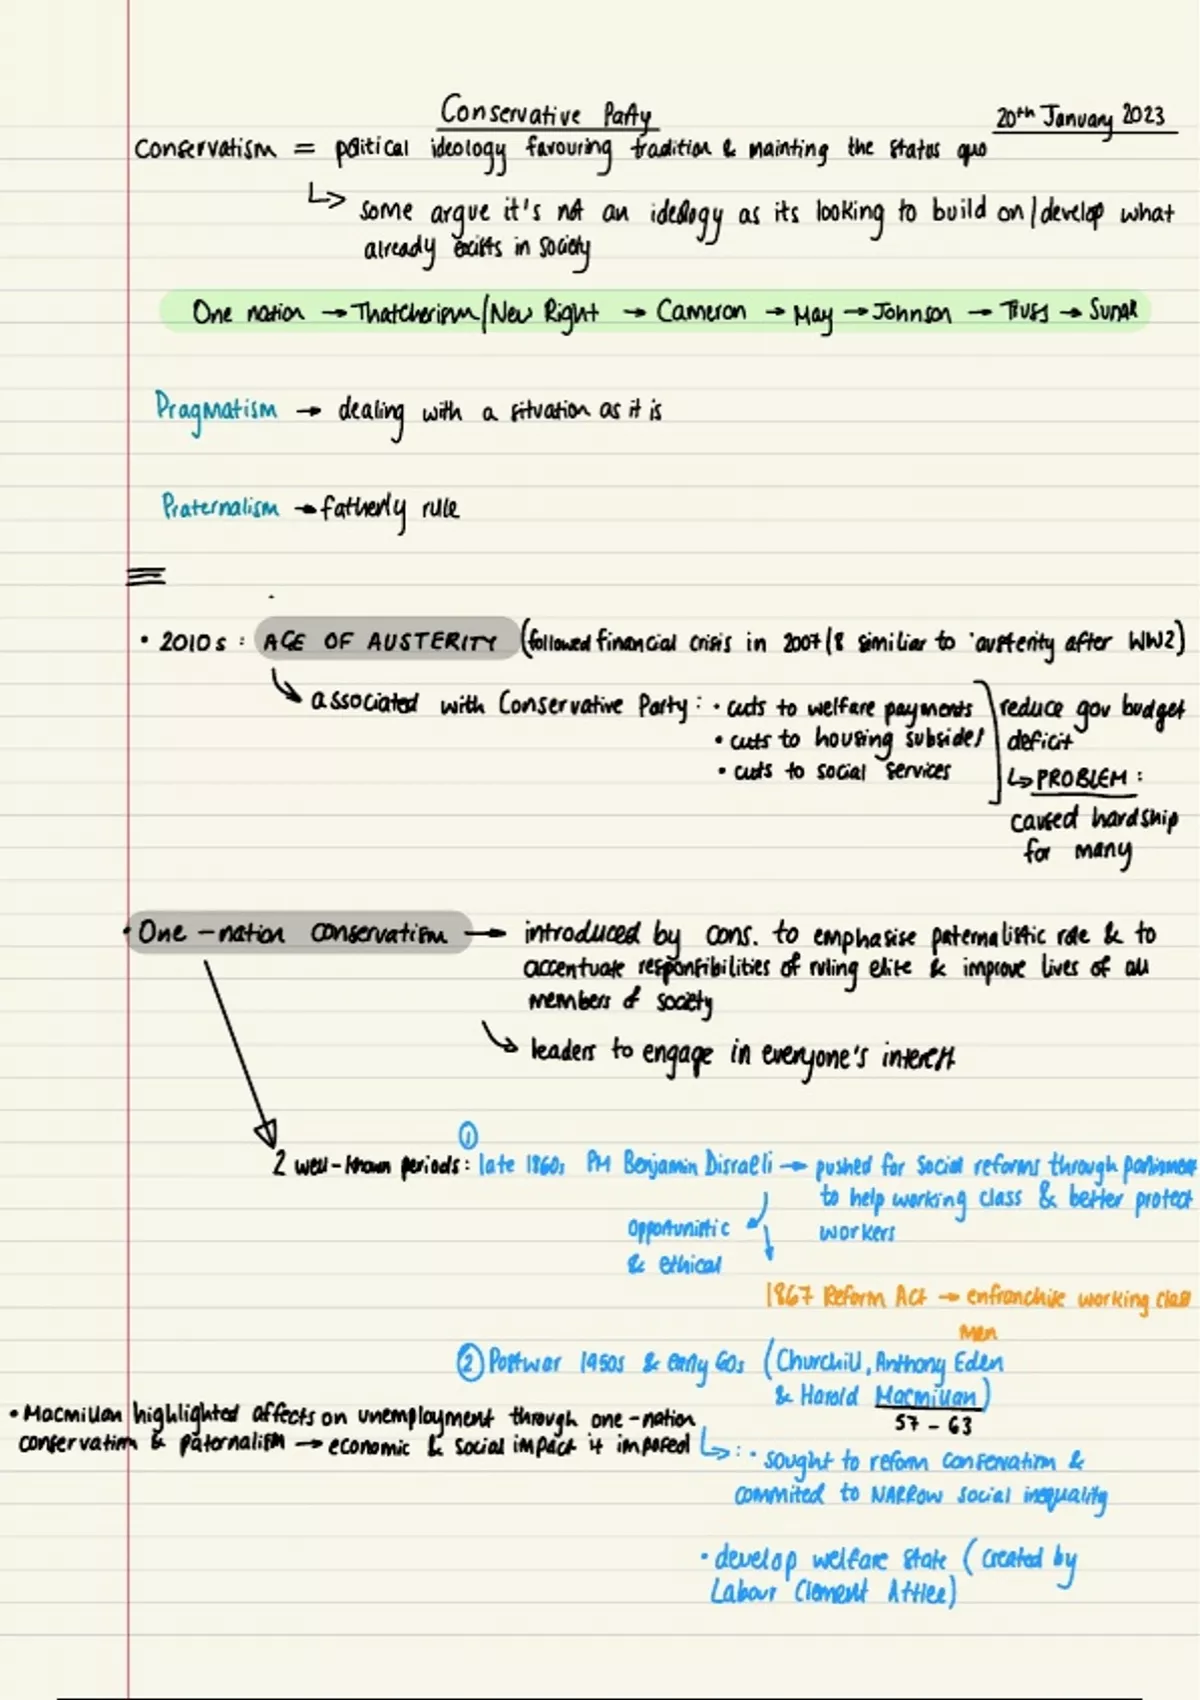 Conservative Party
20th January 2023
Conservatism = political ideology favouring tradition & mainting the status quo
↳ some argue it's not an ideology as its looking to build on/develop what
already exists in society
One nation → Thatcherism/New Right → Cameron → May → Johnson → Truss → Sunak
Pragmatism → dealing with a situation as it is
Praternalism → fatherly rule
• 2010s : AGE OF AUSTERITY (followed financial crisis in 2007/8 similiar to 'austerity after WW2)
↳ associated with Conservative Party : • cuts to welfare payments
• cuts to housing subsides
• cuts to social services
reduce gov budget
deficit
↳ PROBLEM :
caused hardship
for many
• One-nation conservatism → introduced by cons. to emphasise paternalistic role & to
accentuate responsibilities of ruling elite & improve lives of all
members of society
↳ leaders to engage in everyone's interest
2 well-known periods : ① late 1860s PM Benjamin Disraeli → pushed for social reforms through parliament
to help working class & better protect
workers
Opportunistic
& ethical
1867 Reform Act → enfranchise working class
men
② Postwar 1950s & early 60s (Churchill, Anthony Eden
& Harold Macmillan)
57 - 63
• Macmillan highlighted affects on unemployment through one-nation
conservatism & paternalism → economic & social impact it imposed
↳ : • sought to reform conservatism &
commited to NARROW social inequality
• develop welfare state (created by
Labour Clement Attlee)